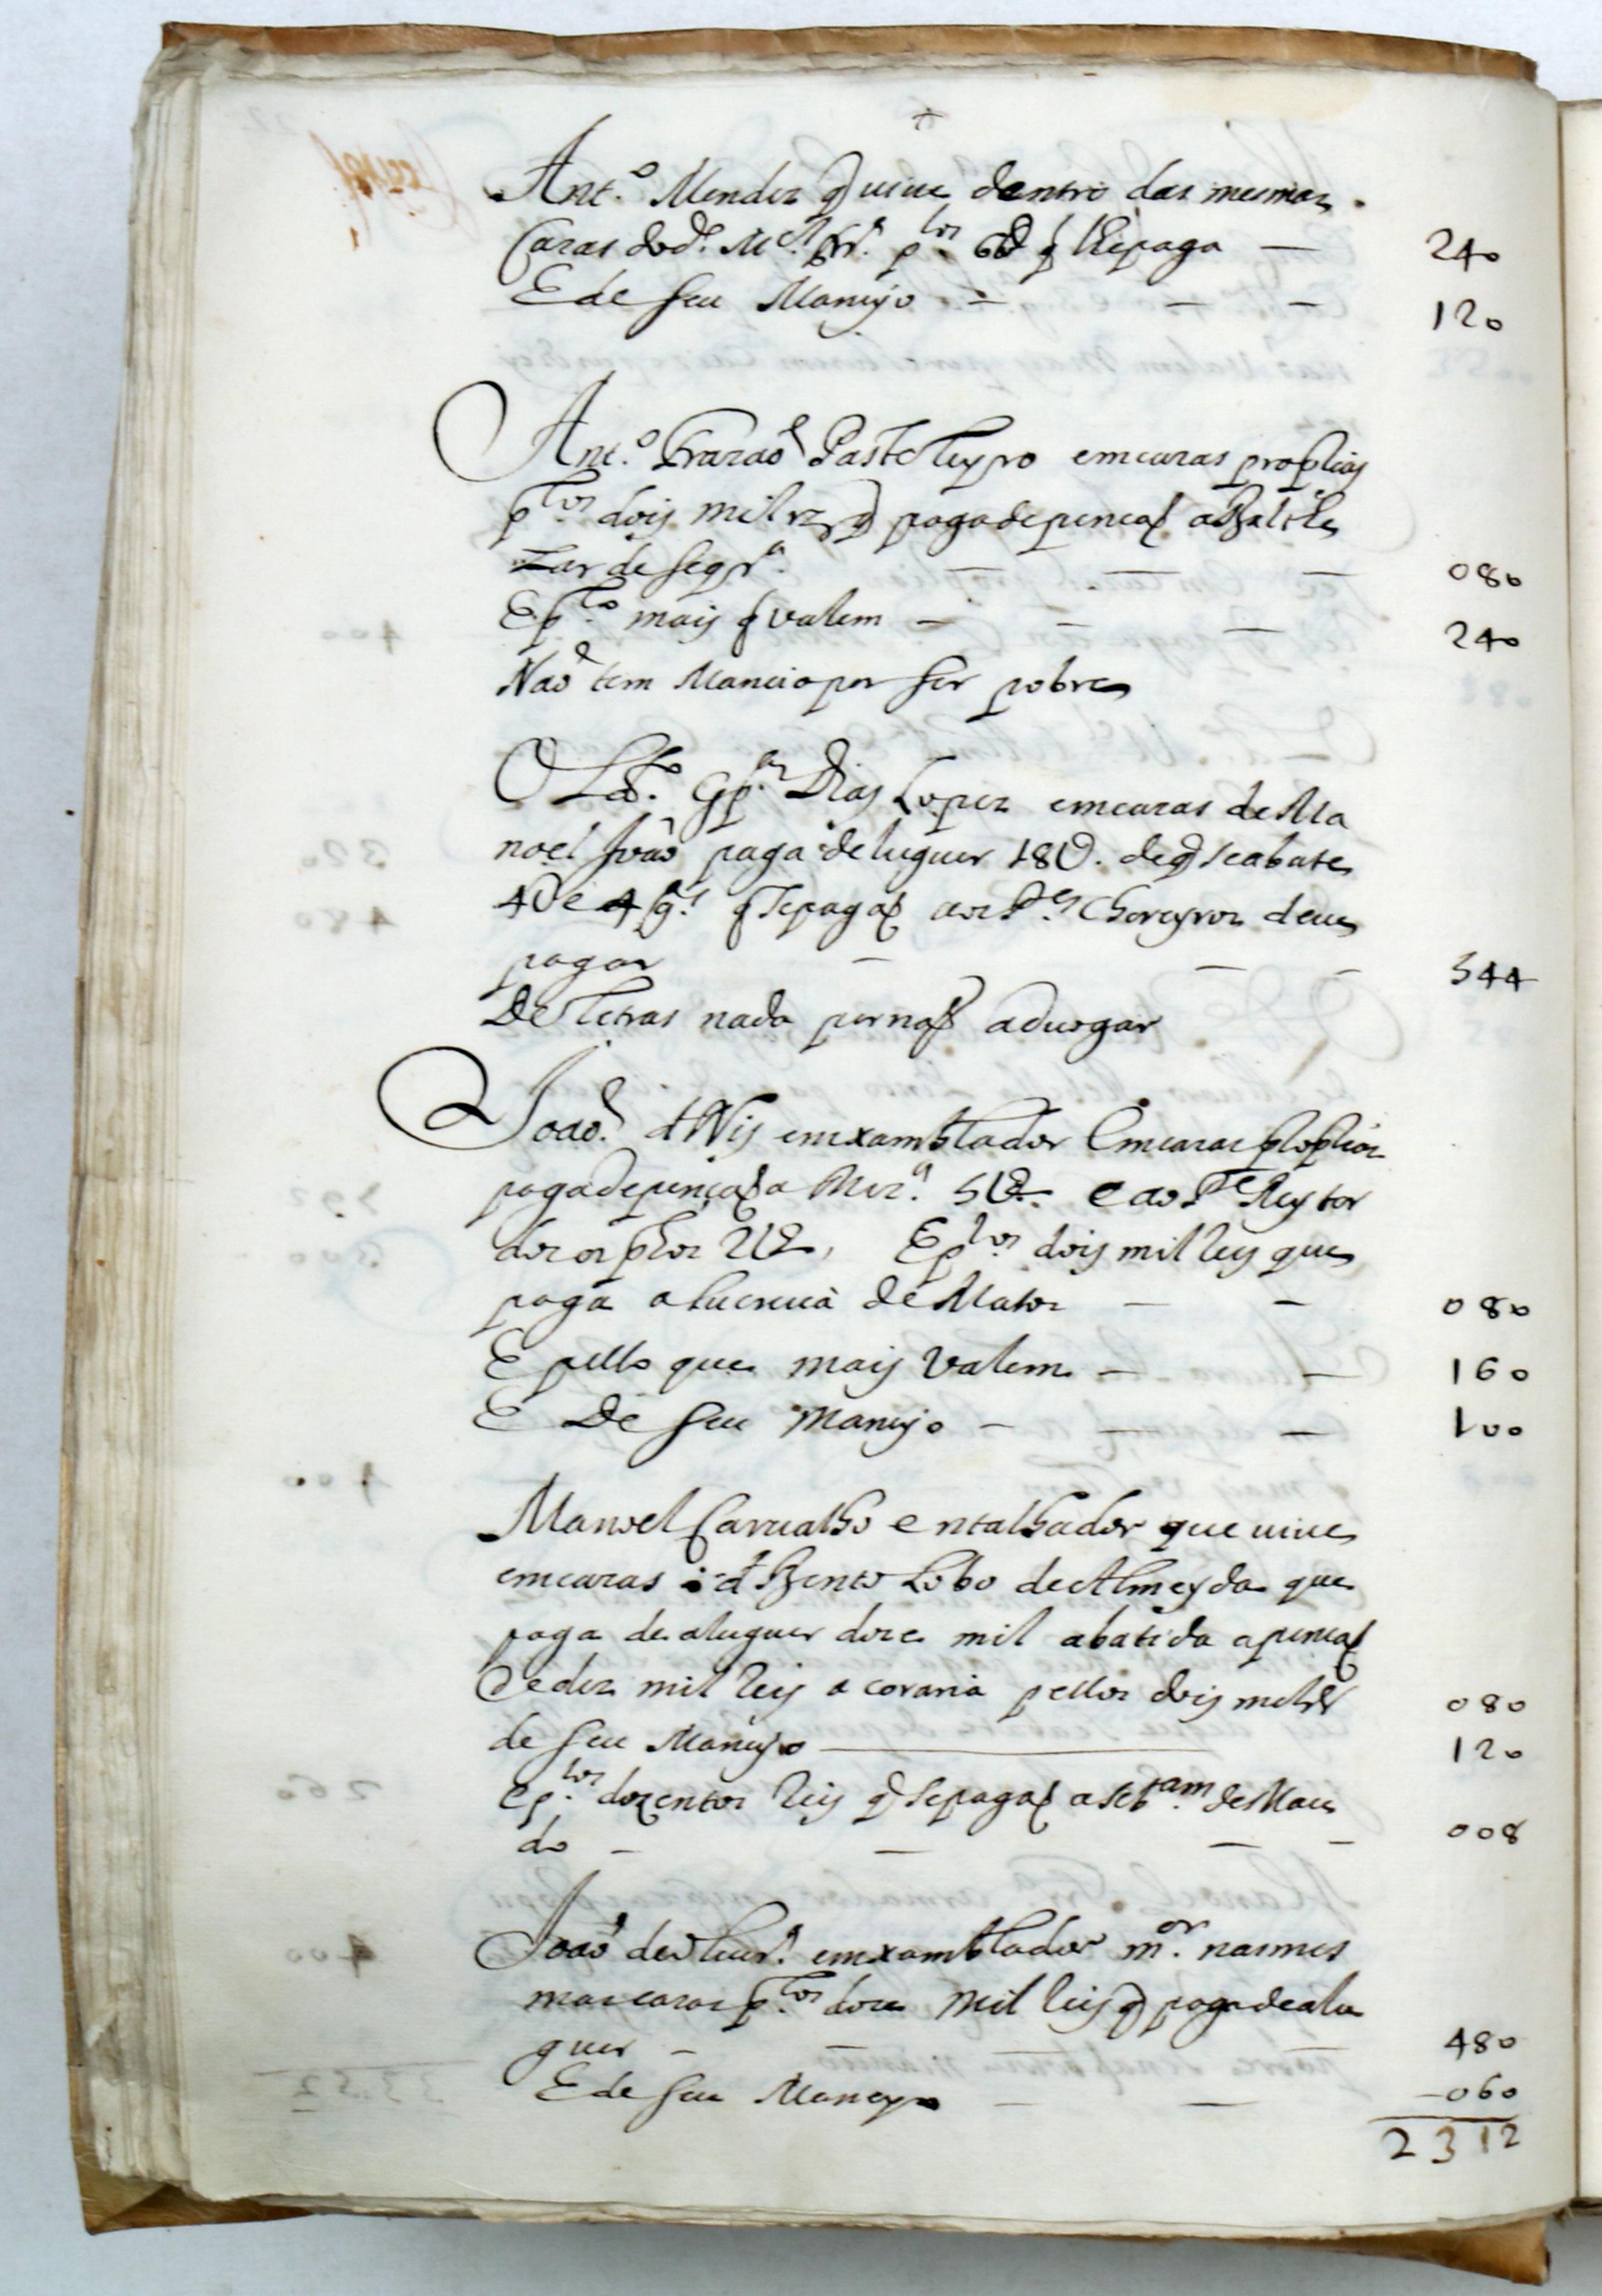 +
Ant.º Mendez q̃ uiue dentro das mesmas
Cazas do d.º M.el frr.ª p.los 6U q̃ lhe paga — 240
E de seu Maneyo — — — 120
Ant.º Frazaõ Pasteleyro em cazas proprias
p.los dois mil rz q̃ paga de pencaõ a Balthe
zar de seqr.ª — — — 080
E p.lo mais q̃ valem — — — 240
Naõ tem Maneio por ser pobre
O Ld.º Gp.ar Dias Lopez em cazas de Ma
noel Joaõ paga de luguer 18U. de q̃ se abate
4U e 4 g.as q̃ se pagaõ aos P.es deue
pagar — — — 544
De letras nada por naõ aduogar
Joaõ Luis emxamblador em cazas proprias
paga de pençaõ a Miz.ª 5U e ao P.e Reytor
dos 2U, E p.los dois mil reis que
paga a lucrecia de Matos — — 080
E pello que mais valem — — 160
E De seu Maneyo — — — 100
Manoel Carualho entalhador que uiue
em cazas d Bento Lobo de Almeyda que
paga de aluguer doze mil abatida a pencaõ
de dez mil reis a coraria pellos dois mil rs 080
de seu Maneyo — 120
e p.los dozentos reis q̃ se pagaõ a seb.am de Mace
do — — — — 008
Joaõ de oliuer.ª emxamblador m.or nas mes
mas cazas p.los doze mil reis q̃ paga de alu
guer — — — 480
E de seu Maneyo — — 060
2312